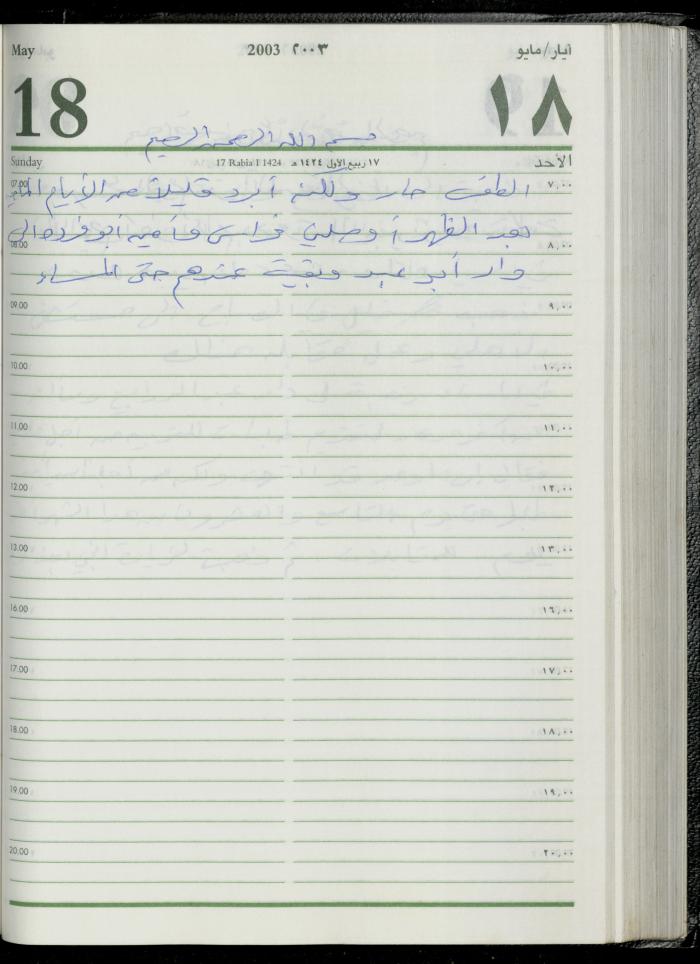 May 2003 ٢٠٠٣ أيار/مايو
18 ١٨
بسم الله الرحمن الرحيم
Sunday 17 Rabia I 1424 ١٧ ربيع الأول ١٤٢٤ هـ الأحد
07.00 ٧,٠٠
الطقس حار ولكنه أبرد قليلاً من الأيام
بعد الظهر أوصلني فراس
08.00 ٨,٠٠
دار أبو عبد وبقيت عندهم حتى المساء
09.00 ٩,٠٠
10.00 ١٠,٠٠
11.00 ١١,٠٠
12.00 ١٢,٠٠
13.00 ١٣,٠٠
16.00 ١٦,٠٠
17.00 ١٧,٠٠
18.00 ١٨,٠٠
19.00 ١٩,٠٠
20.00 ٢٠,٠٠